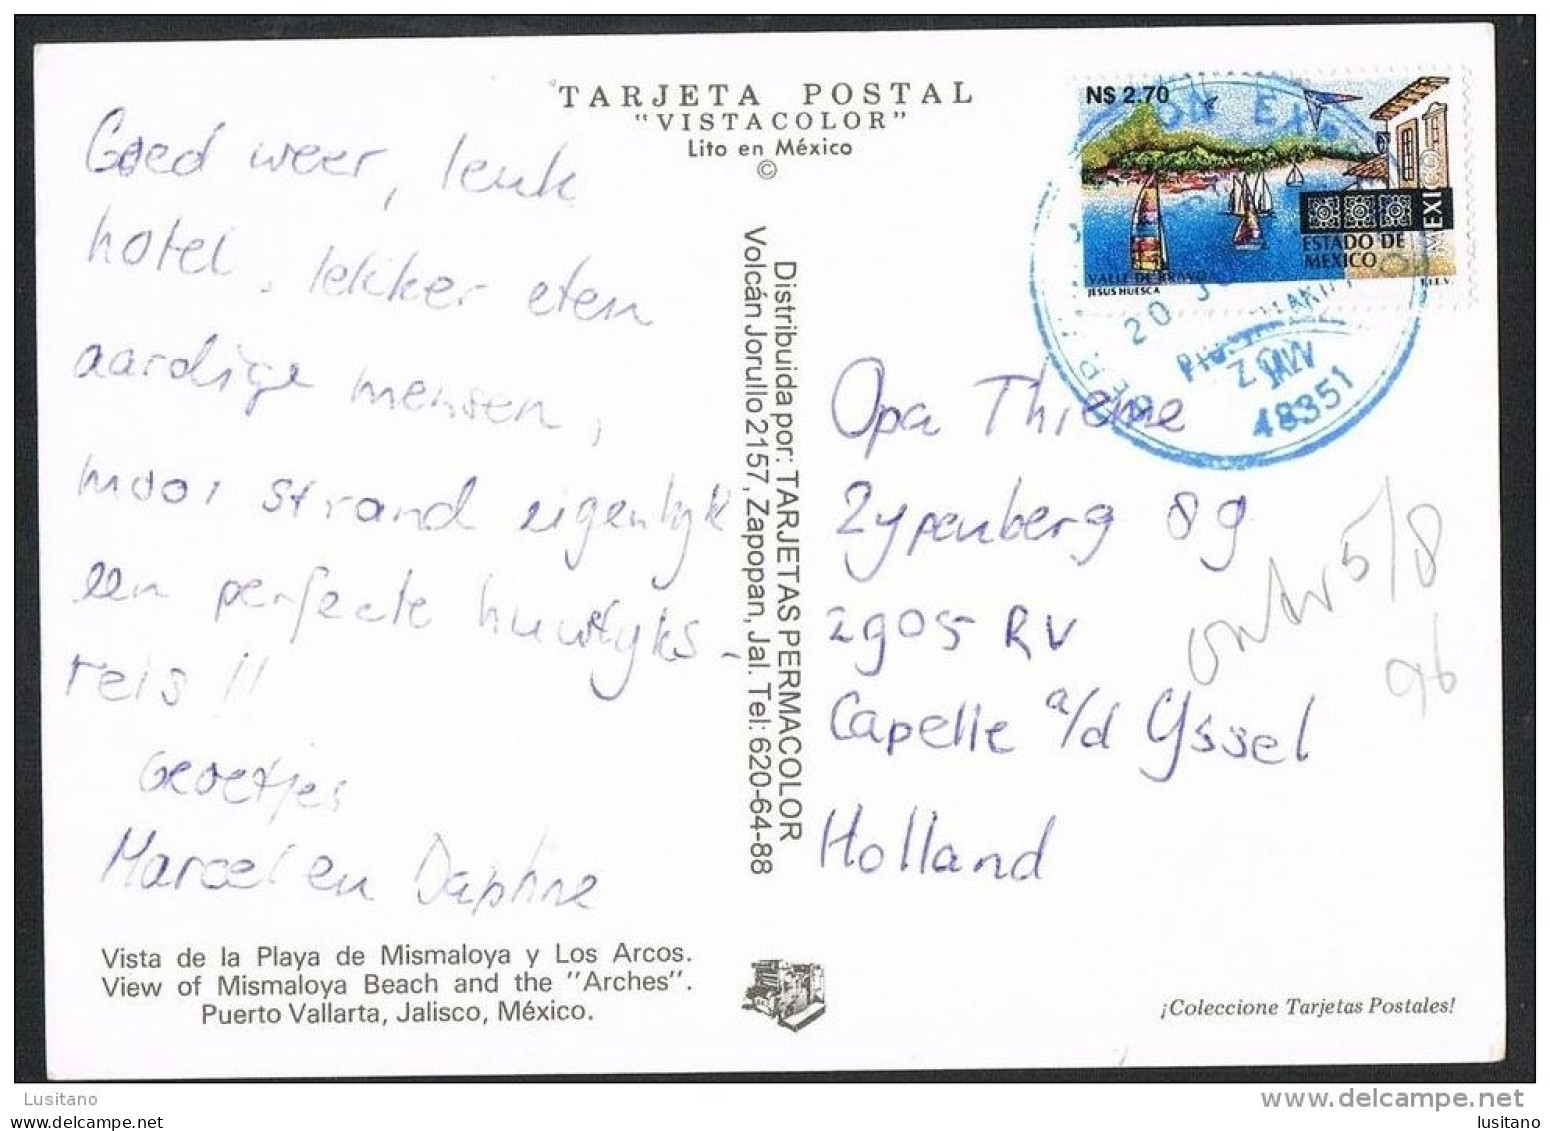 TARJETA POSTAL
"VISTACOLOR"
Lito en México
©
Goed weer, leuk
hotel, lekker eten
aardige mensen,
mooi strand eigenlyk
een perfecte huwlyks-
reis !!
Groetjes
Marcel en Daphne
Vista de la Playa de Mismaloya y Los Arcos.
View of Mismaloya Beach and the "Arches".
Puerto Vallarta, Jalisco, México.
Distribuida por: TARJETAS PERMACOLOR
Volcán Jorullo 2157, Zapopan, Jal. Tel: 620-64-88
N$ 2.70
MEXICO
ESTADO DE
MEXICO
VALLE DE BRAVO
JESUS HUESCA
T.I.E.V.
20
48351
Opa Thieme
Zypenberg 89
2905 RV
Capelle a/d Yssel
Holland
5/8
96
¡Coleccione Tarjetas Postales!
Lusitano
www.delcampe.net
lusitano
lusitano